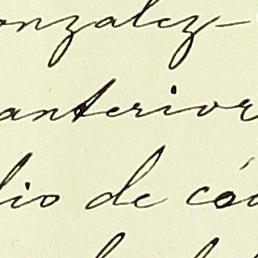 onzalez-
anterior
lio de có